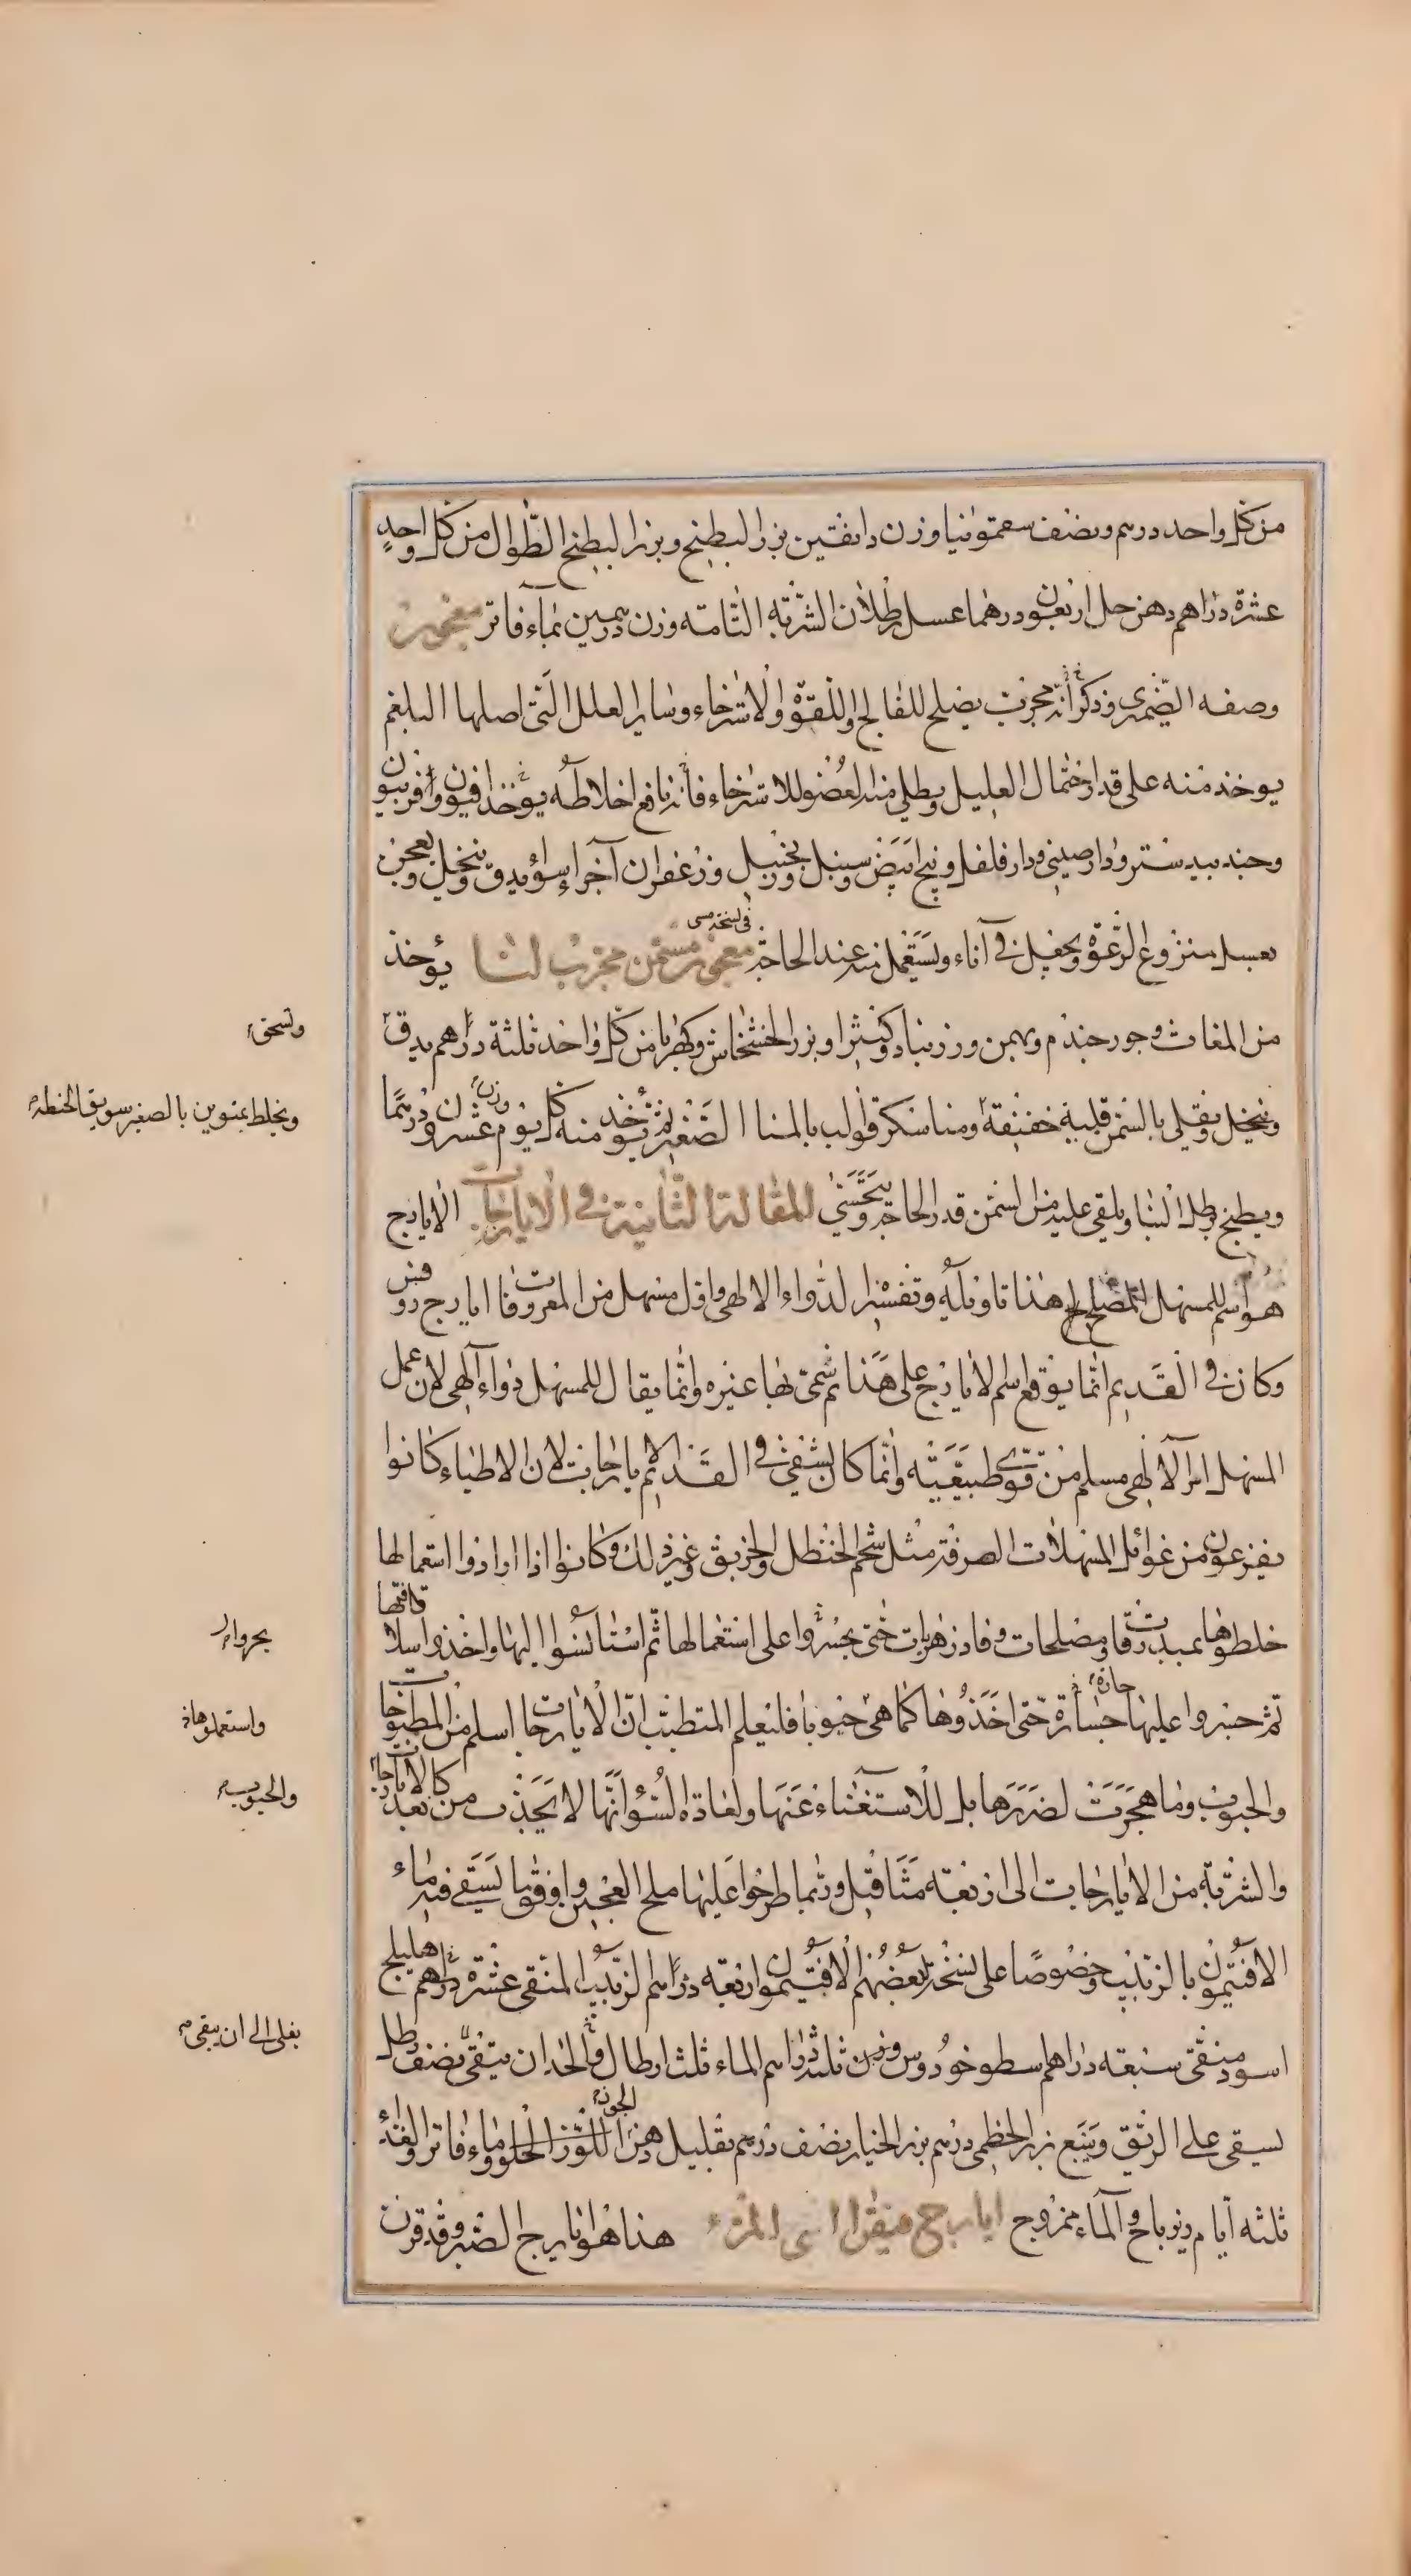 من كل واحد درهم ونصف سقمونيا وزن دانقين بزر البطيخ وبزر البطيخ الطوال من كل واحد
عشرة دراهم دهن حل اربعون درهما عسل رطلان الشربة التامة وزن درهمين بماء فاتر معجون
وصفه الضمرى وذكر انه مجرب يصلح للفالج واللقوة والاسترخاء وساير العلل التى اصلها البلغم
يوخذ منه على قدر احتمال العليل ويطلى منه العضو للاسترخاء فانه نافع اخلاطه يوخذ افيون وافربيون
وجندبيدستر ودارصينى ودارفلفل وبنج ابيض وسنبل وزنجبيل وزعفران آجزاء سواء يدق وينخل ويعجن
بعسل منزوع الرغوة ويجعل فى آناء ويستعمل منه عند الحاجة معجون مسمن مجرب لنا يؤخذ
فى نسخة مسمى
من المغاث وجور جندم وبهمن وزرنباد وكثيرا وبزر الخشخاش وكهربا من كل واحد ثلثة دراهم يدق
وتسحق
وينخل ويقلى بالسمن قلية خفيفة ومنا سكر ولب بالمنا الصغير ثم يوخذ منه كل يوم وزن عشرون درهما
ويخلط بمنوين بالصغير سويق الحنطه
ويطبخ برطل لبنا ويلقى عليه من السمن قدر الحاجة ويتحسى المقالة الثانية فى الايارجات الايارج
هو اسم للمسهل المصلح هذا تاويله وتفسيره الدواء الالهى واول مسهل من المعروفات ايارج روفس
وكان فى القديم انما يوقع اسم الايارج على هذا ثم سمى بها غيره وانما يقال للمسهل دواء آلهى لان عمل
المسهل امر آلالهى مسلم من قوى طبيعية وانما كان يشفى فى القديم بالايارجات لان الاطباء كانوا
يفزعون من غوائل المسهلات الصرفة مثل شحم الحنظل والخربق وغير ذلك وكانوا اذا ارادوا استعمالها
خلطوها بمبدرقات ومصلحات وفادزهريات حتى يجسروا على استعمالها ثم استانسوا اليها واخذوا سلاقتها
بجروا
ثم جسروا عليها جسارة حتى اخذوها كما هى حبوبا فليعلم المتطبب ان الايارجات اسلم من المطبوخات
واستعملوها
والحبوب وما هجرت لضررها بل للاستغناء عنها ولعادة السوء انها لا تجذب من بعد كالايارجات
والحبوب
والشربة من الايارجات الى اربعة مثاقيل وربما طرحوا عليها ملح العجين واوفق ما يسقى فيه ماء
الافتيمون بالزبيب وخصوصا على نسخة بعضهم الافتيمون اربعة دراهم الزبيب المنقى عشرة دراهم هليلج
اسود منقى سبعة دراهم اسطوخودوس وزن ثلثة دراهم الماء ثلث ارطال والحد ان يبقى نصف رطل
يغلى الى ان يبقى
يسقى على الريق ويتبع بزر الخطمى درهم بزر الخيار نصف درهم بقليل دهن اللوز الحلو وماء فاتر والغذاء
ثلثة ايام زيرباج والماء ممزوج ايارج فيقرا اى المرة هذا هو ايارج الصبر وقد قرن